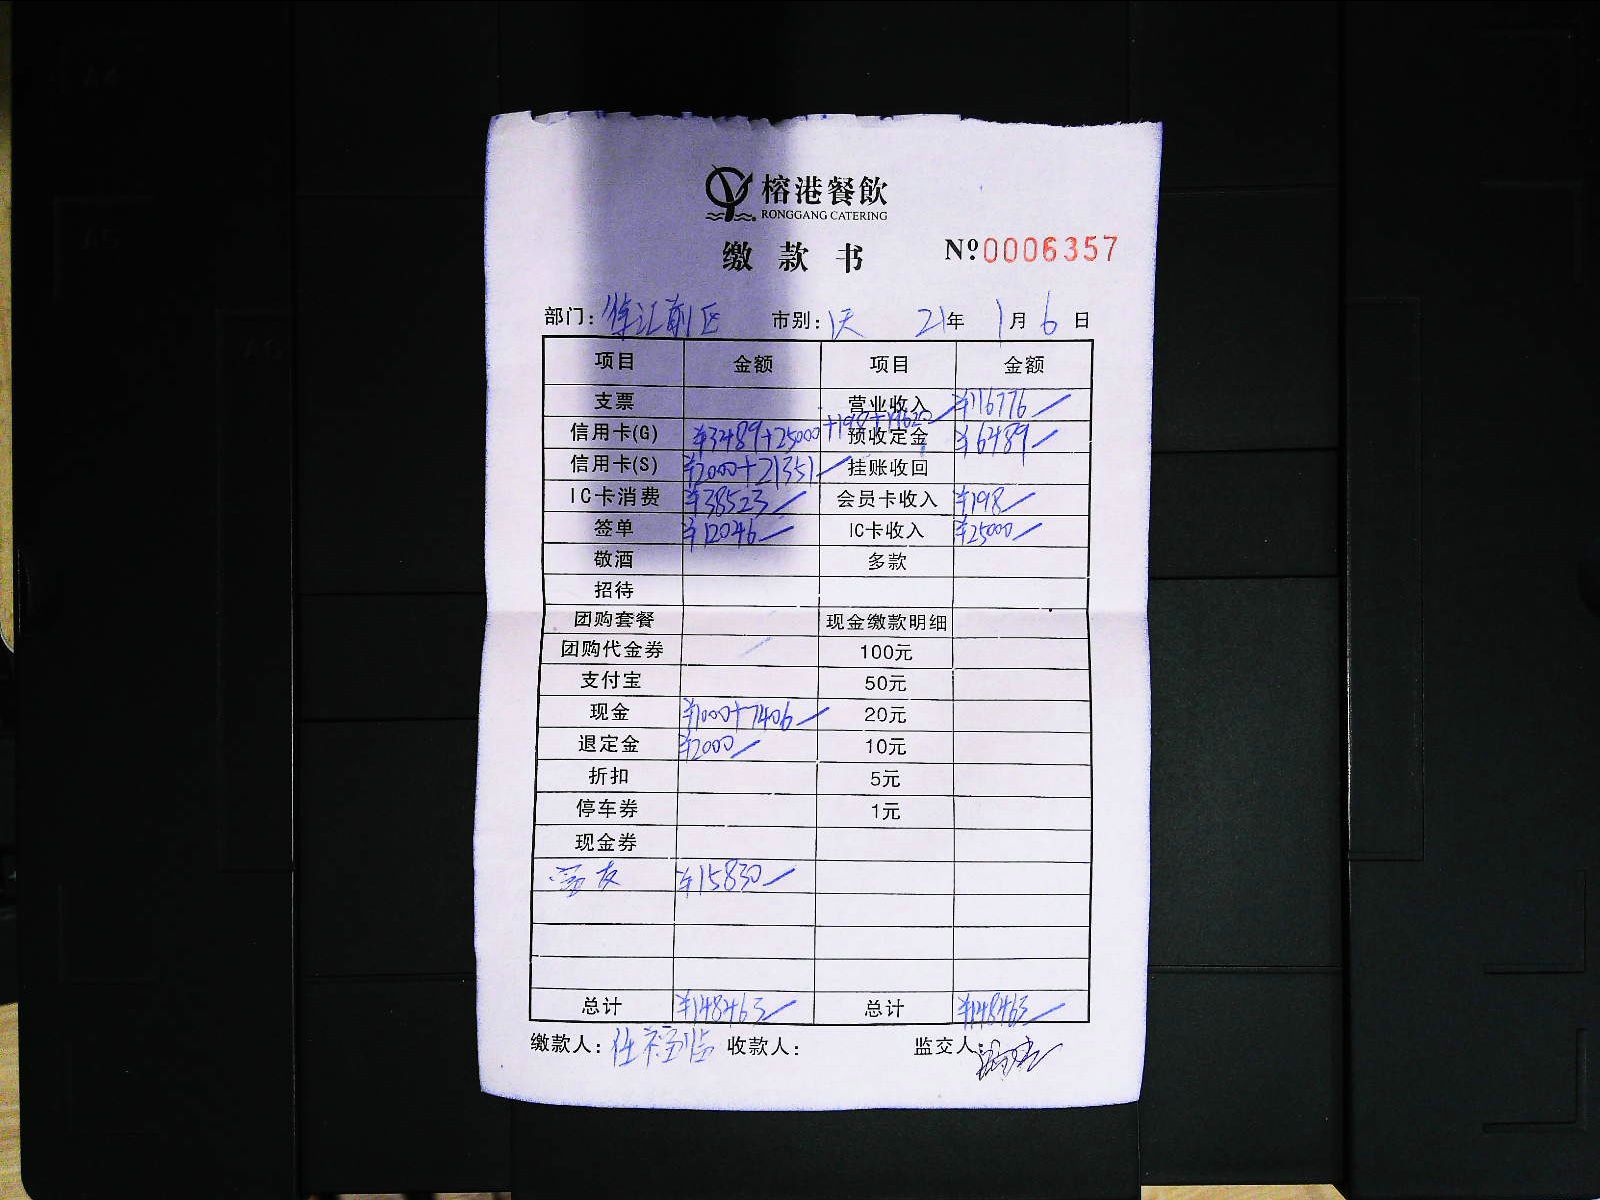 榕港餐飲
RONGGANG CATERING
缴款书 Nº0006357
部门：徐汇前区 市别：1天 21年 1月 6日
项目 金额 项目 金额
支票 营业收入 ¥116776
信用卡(G) ¥3489+25000+198+19620 预收定金 ¥6489
信用卡(S) ¥2000+21351 挂账收回
IC卡消费 ¥38523 会员卡收入 ¥198
签单 ¥12046 IC卡收入 ¥25000
敬酒 多款
招待
团购套餐 现金缴款明细
团购代金券 100元
支付宝 50元
现金 ¥1000+7406 20元
退定金 ¥2000 10元
折扣 5元
停车券 1元
现金券
¥15830
总计 ¥148463 总计 ¥148463
缴款人：任 收款人： 监交人：